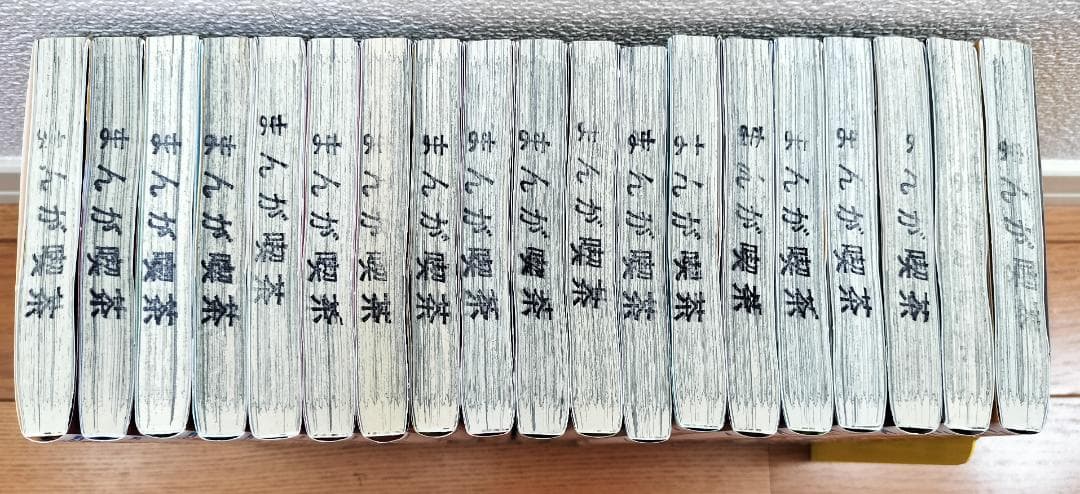 まんが喫茶
まんが喫茶
まんが喫茶
まんが喫茶
まんが喫茶
まんが喫茶
まんが喫茶
まんが喫茶
まんが喫茶
まんが喫茶
まんが喫茶
まんが喫茶
まんが喫茶
まんが喫茶
まんが喫茶
まんが喫茶
まんが喫茶
まんが喫茶